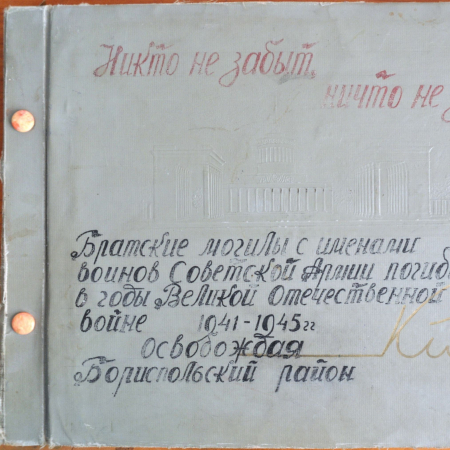 Никто не забыт,
ничто не з
Братские могилы с именами
воинов Советской Армии погиб
в годы Великой Отечественной
войне 1941-1945гг
Освобождая
Бориспольский район